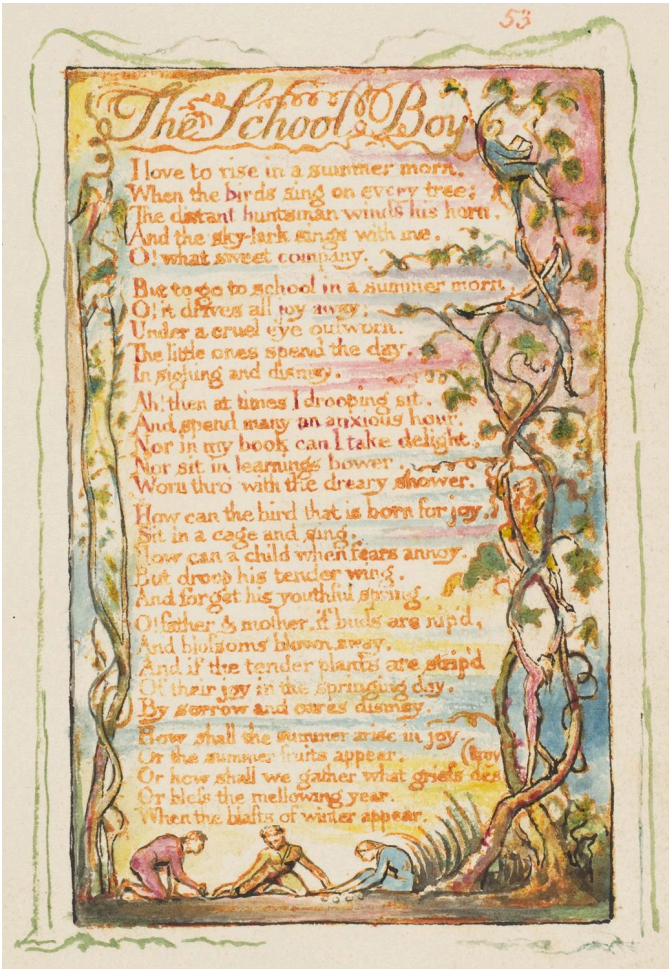 53
The School Boy
I love to rise in a summer morn,
When the birds sing on every tree;
The distant huntsman winds his horn,
And the sky-lark sings with me.
O! what sweet company.
But to go to school in a summer morn,
O! it drives all joy away;
Under a cruel eye outworn,
The little ones spend the day,
In sighing and dismay.
Ah! then at times I drooping sit,
And spend many an anxious hour.
Nor in my book can I take delight,
Nor sit in learnings bower,
Worn thro' with the dreary shower.
How can the bird that is born for joy,
Sit in a cage and sing.
How can a child when fears annoy,
But droop his tender wing,
And forget his youthful spring.
O! father & mother, if buds are nip'd,
And blossoms blown away,
And if the tender plants are strip'd
Of their joy in the springing day,
By sorrow and cares dismay,
How shall the summer arise in joy
Or the summer fruits appear.
Or how shall we gather what griefs des
(troy
Or bless the mellowing year,
When the blasts of winter appear.